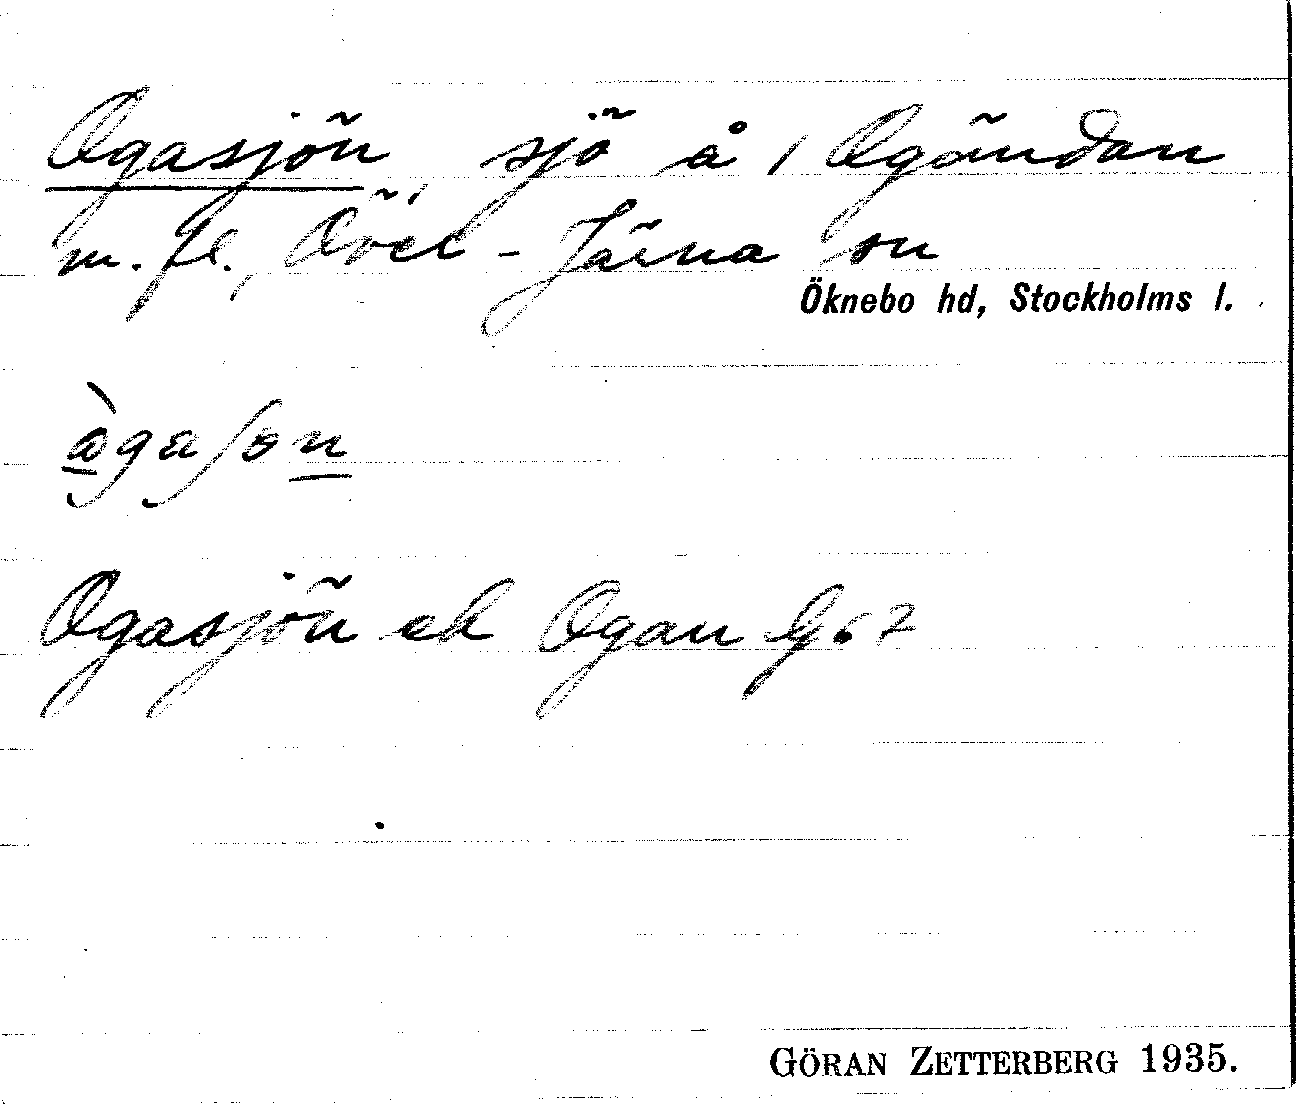 Ogasjön, sjö å 1 Ogöndan
m. fl., Över-Järna sn
Öknebo hd, Stockholms l.
Ogasjön el Ogan G 67
GÖRAN ZETTERBERG 1935.